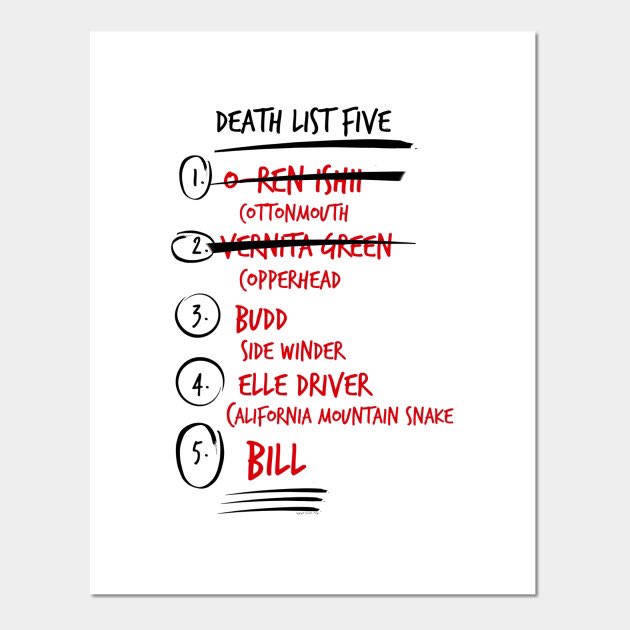 DEATH LIST FIVE
1. O-REN ISHII
COTTONMOUTH
2. VERNITA GREEN
COPPERHEAD
3. BUDD
SIDE WINDER
4. ELLE DRIVER
CALIFORNIA MOUNTAIN SNAKE
5. BILL